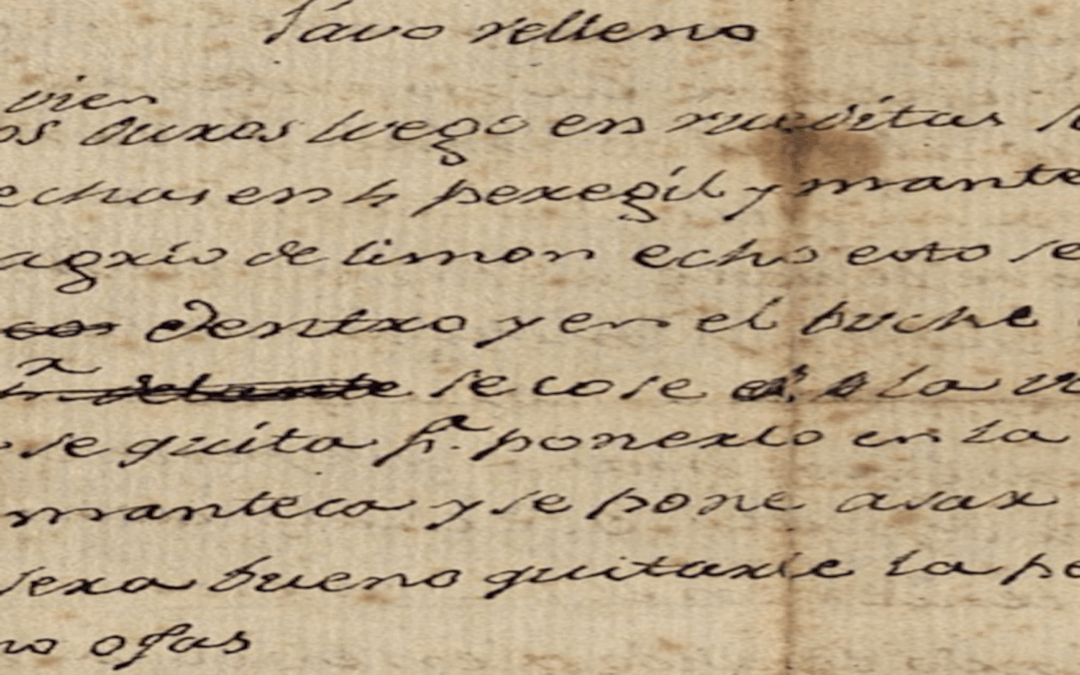 Pavo relleno
vien
os duros luego en rueditas
echas en h peregil y mante
agrio de limon echo esto se
dentro y en el buche
delante se cose la
se quita pa. ponerlo en la
manteca y se pone asar
sera bueno quitarle la pe
no ojas